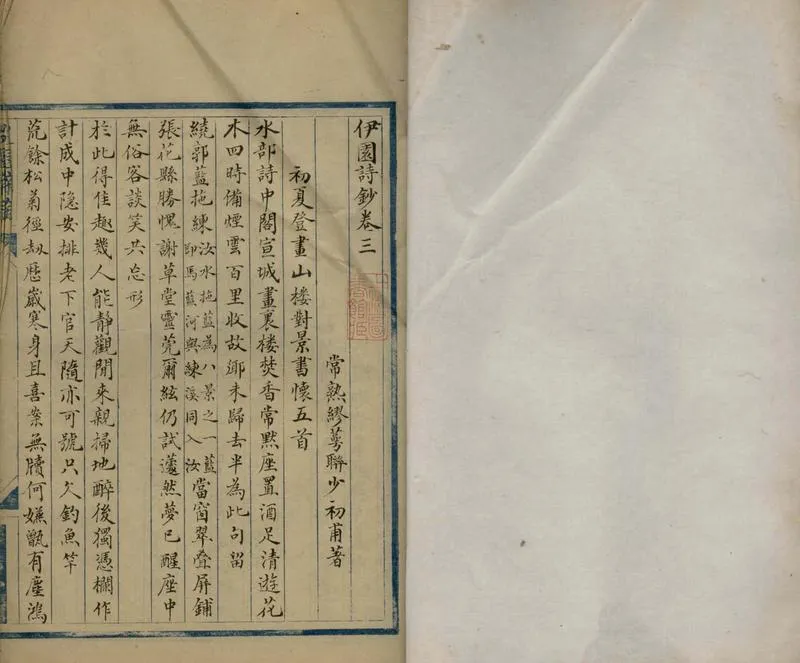 伊園詩鈔卷三
常熟繆萼聯少初甫著
初夏登畫山楼對景書懷五首
水部詩中閣宣城畫裏楼焚香常黙座置酒足清遊花
木四時備煙雲百里收故鄉未歸去半為此句留
繞郭藍拖練汝水拖藍為八景之一藍即馬藍河與練溪同入汝當窗翠叠屏鋪
張花縣勝愧謝草堂靈莞爾絃仍試蘧然夢已醒座中
無俗客談笑共忘形
於此得佳趣幾人能靜觀閒來親掃地醉後獨憑欄作
計成中隐安排老下官天隨亦可號只欠釣魚竿
荒餘松菊徑刼歷歲寒身且喜案無牘何嫌甑有塵鴻